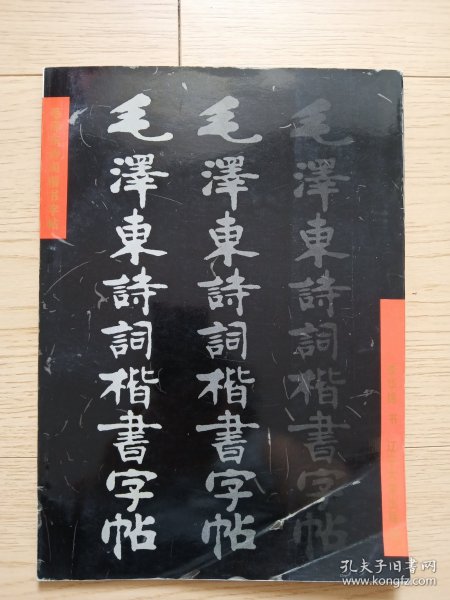 毛澤東詩詞楷書字帖
毛澤東詩詞楷書字帖
毛澤東詩詞楷書字帖
孔夫子旧书网
www.kongfz.com